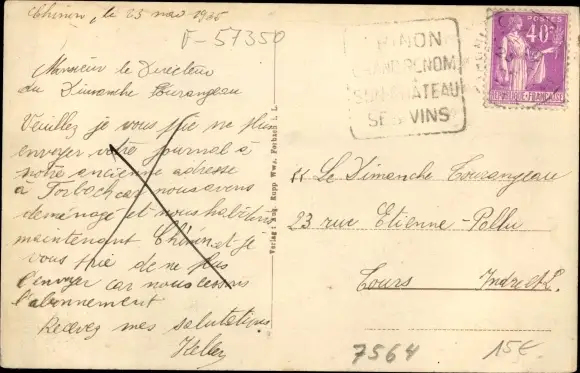 Chinon, le 23 nov 1936
F-57350
Monsieur le Directeur
du Dimanche Tourangeau
Veuillez je vous prie ne plus
envoyer votre journal à
notre ancienne adresse
à Forbach car nous avons
déménagé et nous habitons
maintenant Chinon et je
vous prie de ne plus
l'envoyer car nous cessons
l'abonnement
Recevez mes salutations
Heller
Verlag: Aug. Kopp Wwe, Forbach i. L.
CHINON
GRAND RENOM
SON CHÂTEAU
SES VINS
POSTES
40c
RÉPUBLIQUE FRANÇAISE
Le Dimanche Tourangeau
23 rue Etienne-Pallu
Tours Indre &L.
7564
15€